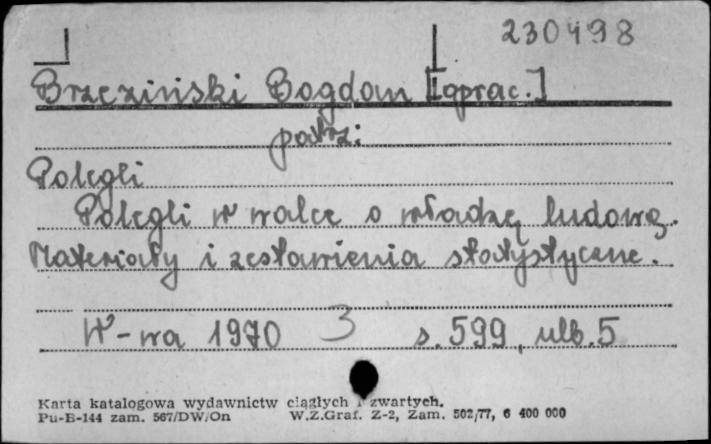 230498
Brzeziński Bogdan [oprac.]
patrz:
Polegli
Polegli w walce o władzę ludową.
Materiały i zestawienia statystyczne.
W-wa 1970 3 s. 599, nlb. 5
Karta katalogowa wydawnictw ciągłych i zwartych.
Pu-B-144 zam. 567/DW/On W.Z.Graf. Z-2, Zam. 502/77, 6 400 000